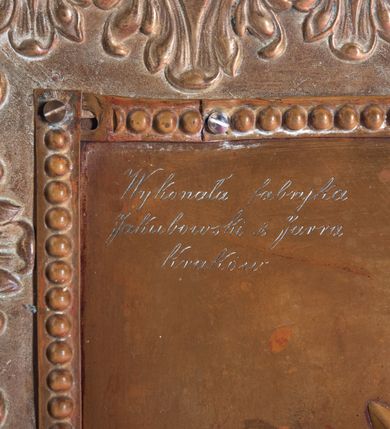 Wykonała fabryka
Jakubowski & Jarra
Kraków